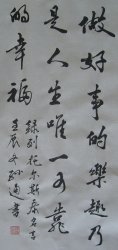 做好事的樂趣乃
是人生唯一可靠
的幸福
錄列托尔斯泰名言
壬辰
書